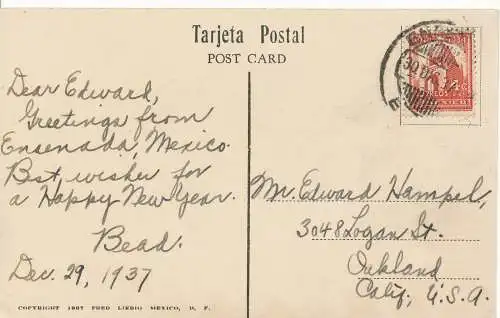 Tarjeta Postal
POST CARD
Dear Edward,
Greetings from
Ensenada, Mexico.
Best wishes for
a Happy New Year.
Bead.
Dec. 29, 1937
Mr. Edward Hampel,
3048 Logan St.
Oakland
Calif., U.S.A.
COPYRIGHT 1907 FRED LIEBIG MEXICO, D. F.